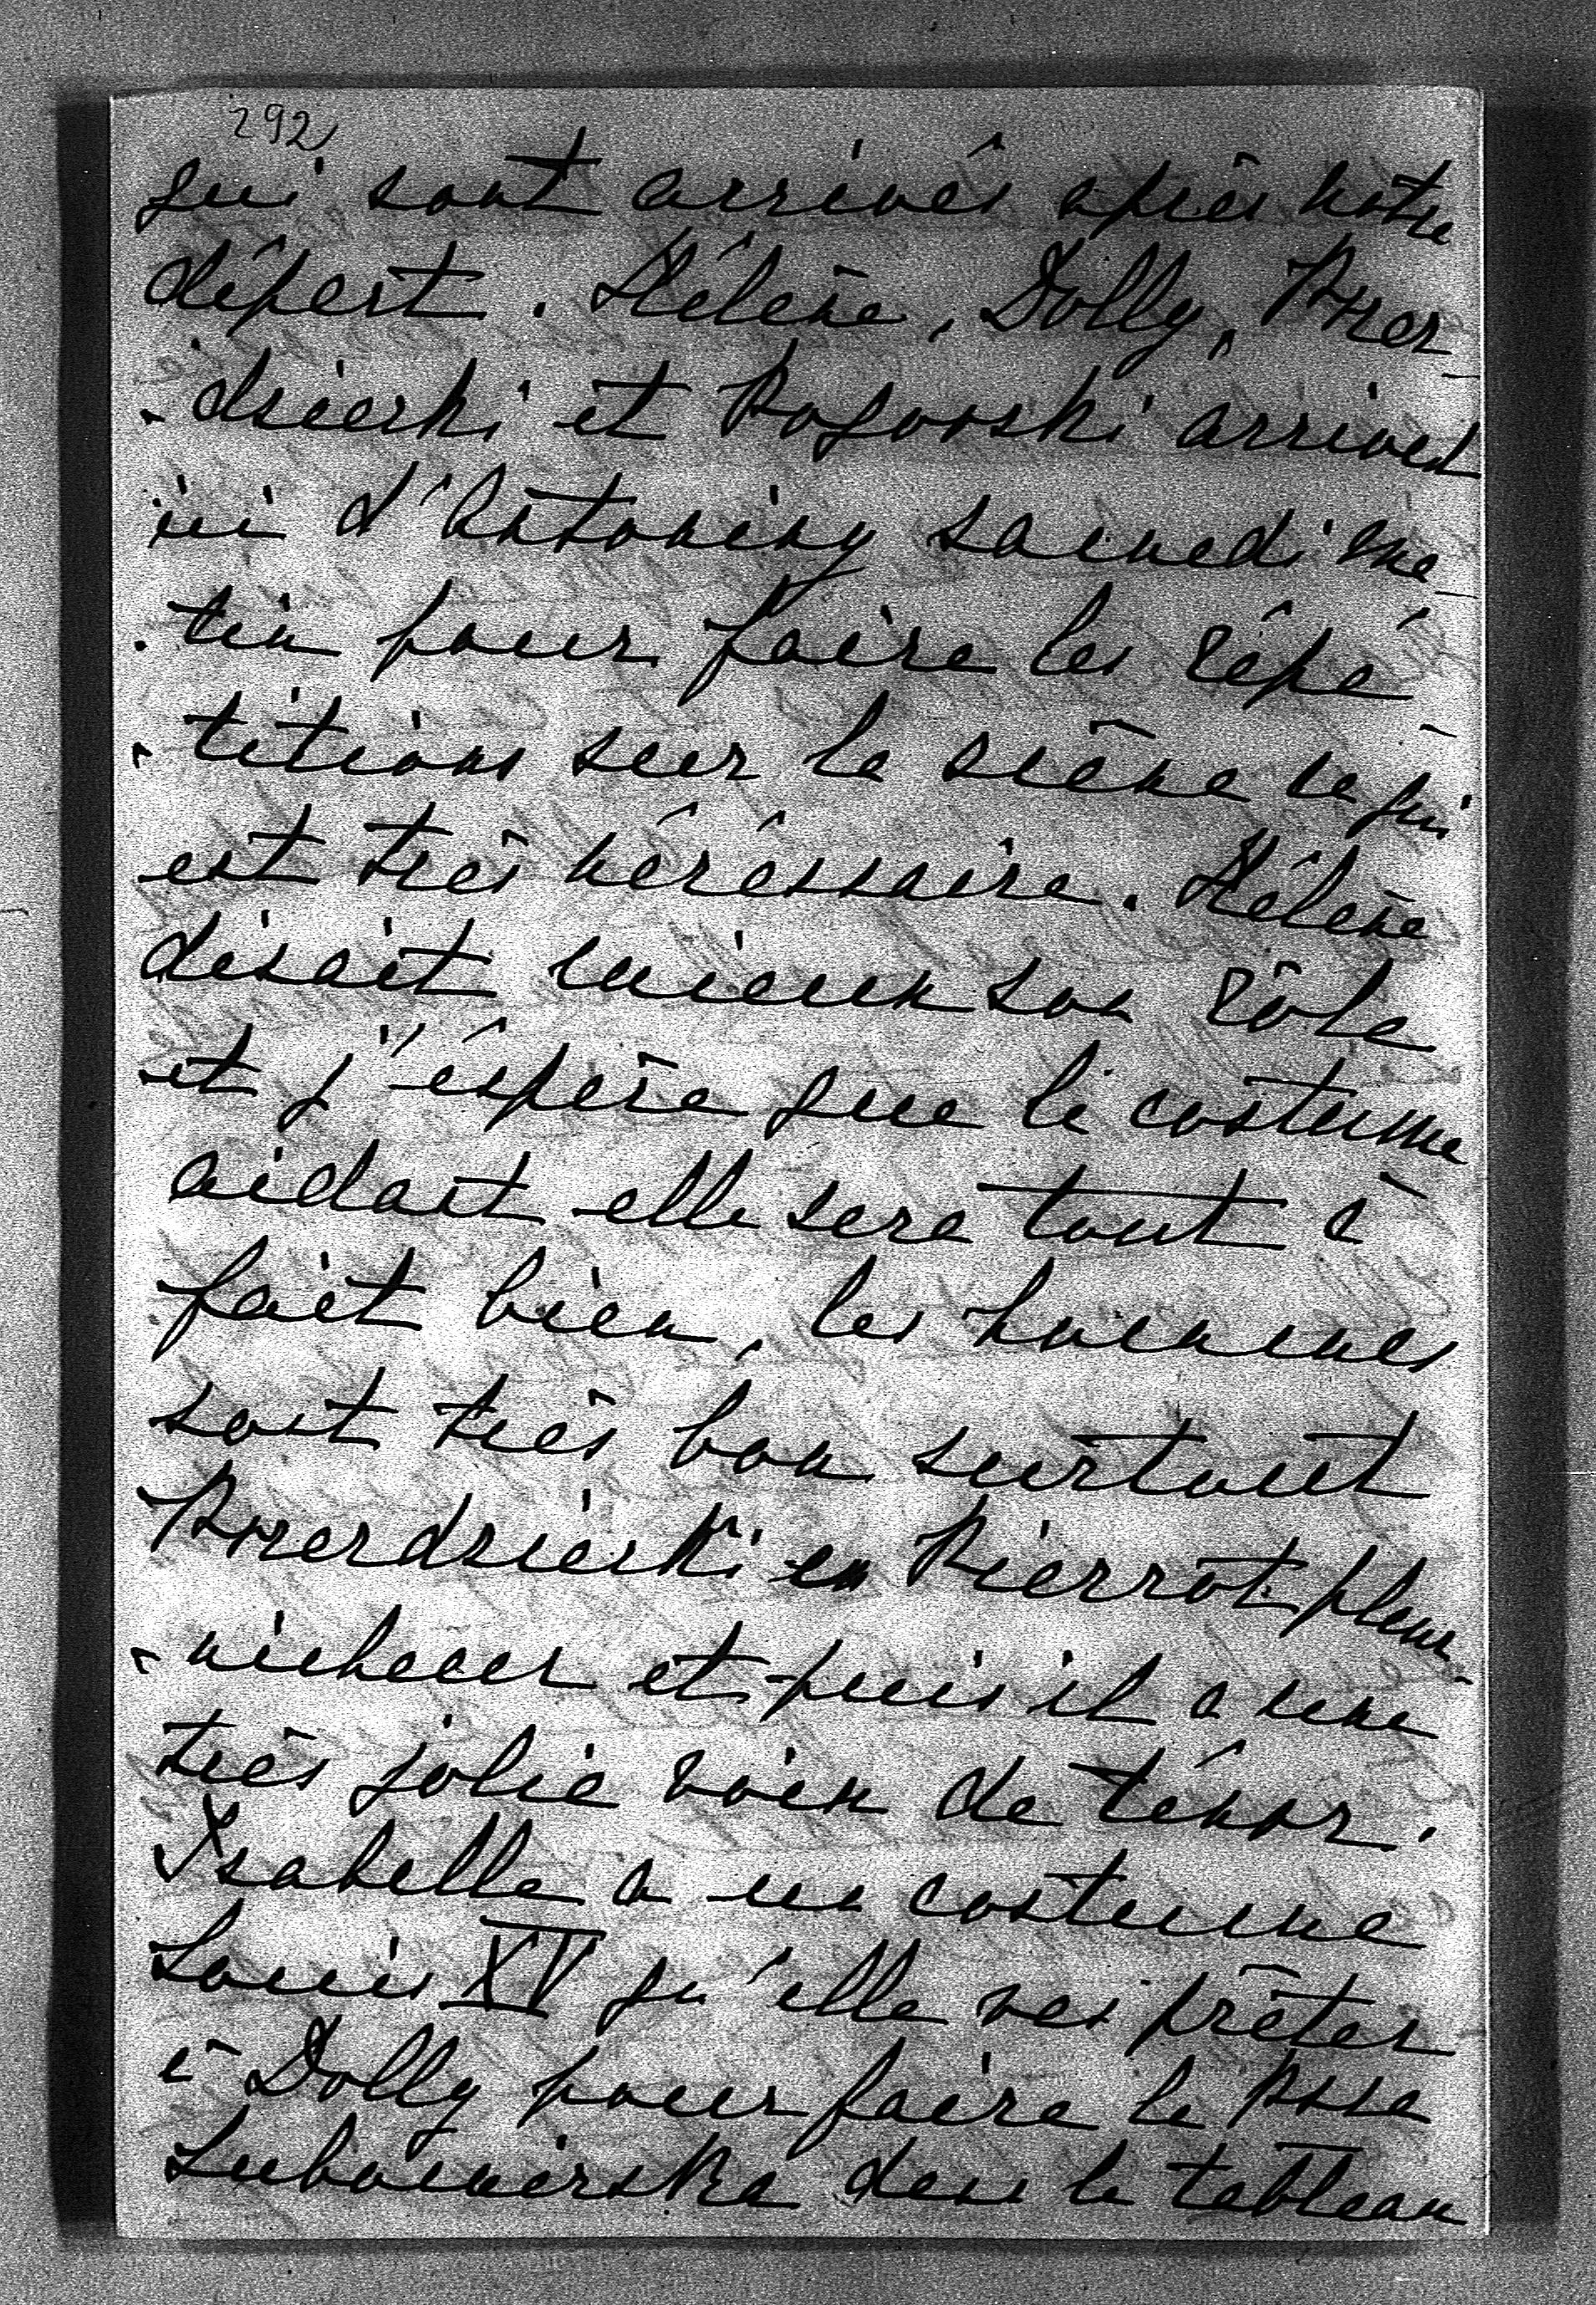 292
qui sont arrivés après notre
départ. Hélène, Dolly,
et arrivent
ici d'Antoniny samedi ma-
-tin pour faire les répé-
-titions sur la scène ce qui
est très nécéssaire. Hélène
disait mieux son rôle
et j'éspère que le costume
aidant elle sera tout à
fait bien, les hommes
sont très bon surtout
en Pierrot pleur-
-nicheur et puis il a une
très jolie voix de ténor.
Isabelle a un costume
Louis XV qu'elle va prêter
à Dolly pour faire la Rosa
Lubomirska dans le tableau